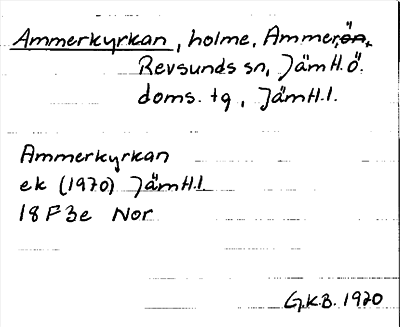 Ammerkyrkan, holme, Ammerön,
Revsunds sn, Jämtl. ö.
doms. tg, Jämtl. l.
Ammerkyrkan
ek (1970) Jämtl. l.
18 F 3e Nor
G.K.B. 1970